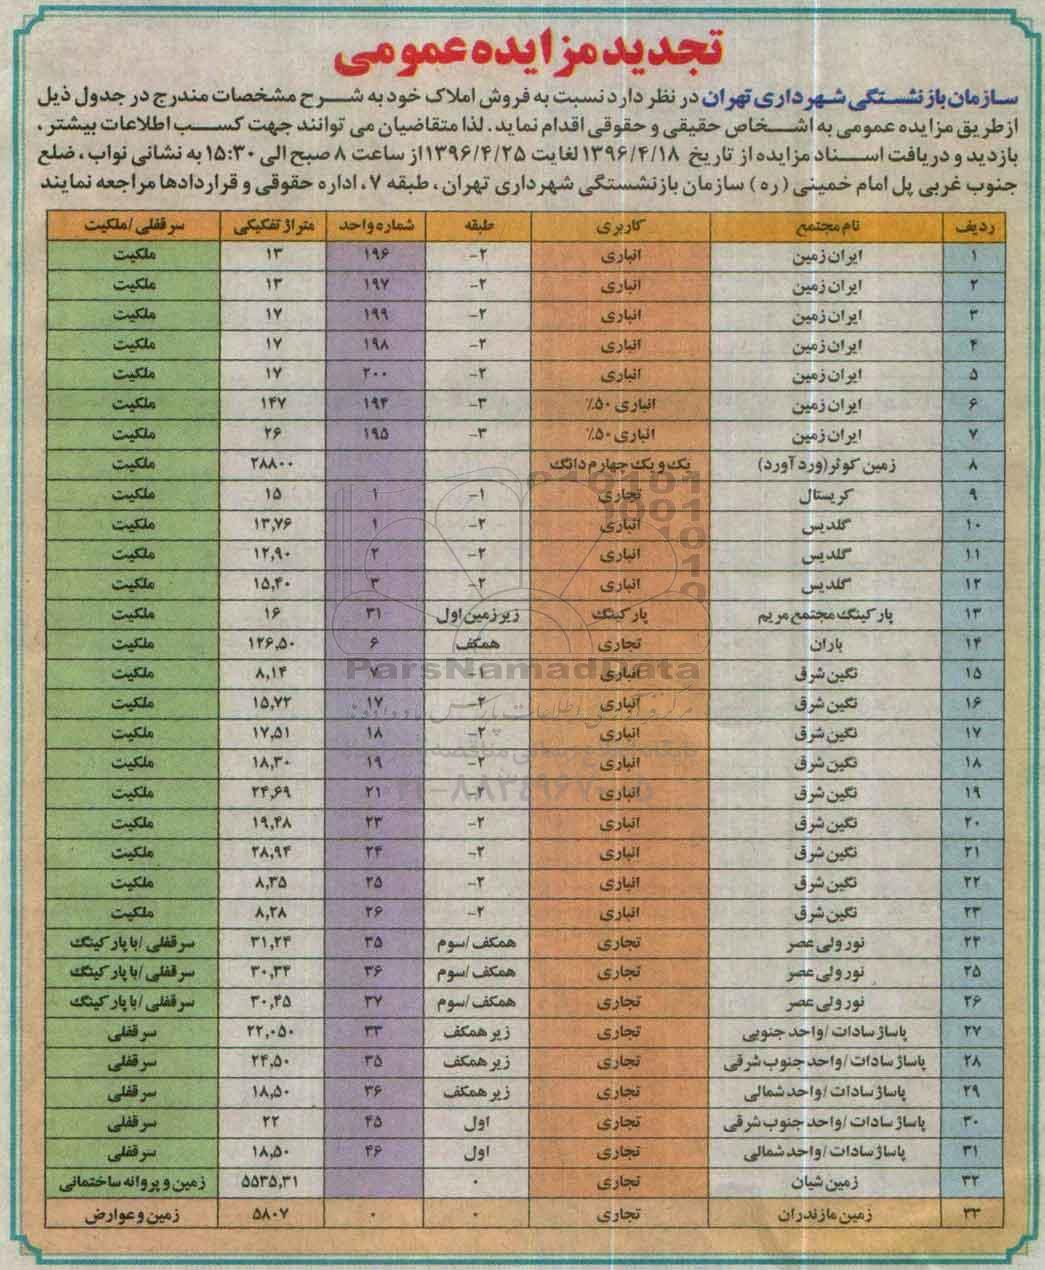 تجدید مزایده عمومی
سازمان بازنشستگی شهرداری تهران در نظر دارد نسبت به فروش املاک خود به شرح مشخصات مندرج در جدول ذیل
از طریق مزایده عمومی به اشخاص حقیقی و حقوقی اقدام نماید. لذا متقاضیان می توانند جهت کسب اطلاعات بیشتر،
بازدید و دریافت اسناد مزایده از تاریخ ۱۳۹۶/۴/۱۸ لغایت ۱۳۹۶/۴/۲۵ از ساعت ۸ صبح الی ۱۵:۳۰ به نشانی نواب، ضلع
جنوب غربی پل امام خمینی (ره) سازمان بازنشستگی شهرداری تهران، طبقه ۷، اداره حقوقی و قراردادها مراجعه نمایند
ردیف نام مجتمع کاربری طبقه شماره واحد متراژ تفکیکی سرقفلی/ملکیت
۱ ایران زمین انباری ۲- ۱۹۶ ۱۳ ملکیت
۲ ایران زمین انباری ۲- ۱۹۷ ۱۳ ملکیت
۳ ایران زمین انباری ۲- ۱۹۹ ۱۷ ملکیت
۴ ایران زمین انباری ۲- ۱۹۸ ۱۷ ملکیت
۵ ایران زمین انباری ۲- ۲۰۰ ۱۷ ملکیت
۶ ایران زمین انباری ۵۰٪ ۳- ۱۹۴ ۱۴۷ ملکیت
۷ ایران زمین انباری ۵۰٪ ۳- ۱۹۵ ۲۶ ملکیت
۸ زمین کوثر(ورد آورد) یک و یک چهارم دانگ ۲۸۸۰۰ ملکیت
۹ کریستال تجاری ۱- ۱ ۱۵ ملکیت
۱۰ گلدیس انباری ۲- ۱ ۱۳,۷۶ ملکیت
۱۱ گلدیس انباری ۲- ۲ ۱۲,۹۰ ملکیت
۱۲ گلدیس انباری ۲- ۳ ۱۵,۴۰ ملکیت
۱۳ پارکینگ مجتمع مریم پارکینگ زیرزمین اول ۳۱ ۱۶ ملکیت
۱۴ باران تجاری همکف ۶ ۱۲۶,۵۰ ملکیت
۱۵ نگین شرق انباری ۷ ۸,۱۴ ملکیت
۱۶ نگین شرق انباری ۲- ۱۷ ۱۵,۷۲ ملکیت
۱۷ نگین شرق انباری ۲- ۱۸ ۱۷,۵۱ ملکیت
۱۸ نگین شرق انباری ۲- ۱۹ ۱۸,۳۰ ملکیت
۱۹ نگین شرق انباری ۲- ۲۱ ۲۴,۶۹ ملکیت
۲۰ نگین شرق انباری ۲- ۲۳ ۱۹,۴۸ ملکیت
۲۱ نگین شرق انباری ۲- ۲۴ ۲۸,۹۴ ملکیت
۲۲ نگین شرق انباری ۲- ۲۵ ۸,۳۵ ملکیت
۲۳ نگین شرق انباری ۲- ۲۶ ۸,۲۸ ملکیت
۲۴ نور ولی عصر تجاری همکف/سوم ۳۵ ۳۱,۲۴ سرقفلی/با پارکینگ
۲۵ نور ولی عصر تجاری همکف/سوم ۳۶ ۳۰,۳۴ سرقفلی/با پارکینگ
۲۶ نور ولی عصر تجاری همکف/سوم ۳۷ ۳۰,۴۵ سرقفلی/با پارکینگ
۲۷ پاساژ سادات/واحد جنوبی تجاری زیر همکف ۳۳ ۲۲,۰۵۰ سرقفلی
۲۸ پاساژ سادات/واحد جنوب شرقی تجاری زیر همکف ۳۵ ۲۴,۵۰ سرقفلی
۲۹ پاساژ سادات/واحد شمالی تجاری زیر همکف ۳۶ ۱۸,۵۰ سرقفلی
۳۰ پاساژ سادات/واحد جنوب شرقی تجاری اول ۴۵ ۲۲ سرقفلی
۳۱ پاساژ سادات/واحد شمالی تجاری اول ۴۶ ۱۸,۵۰ سرقفلی
۳۲ زمین شیان تجاری ۰ ۵۵۳۵,۳۱ زمین و پروانه ساختمانی
۳۳ زمین مازندران تجاری ۰ ۰ ۵۸۰۷ زمین و عوارض
ParsNamadData